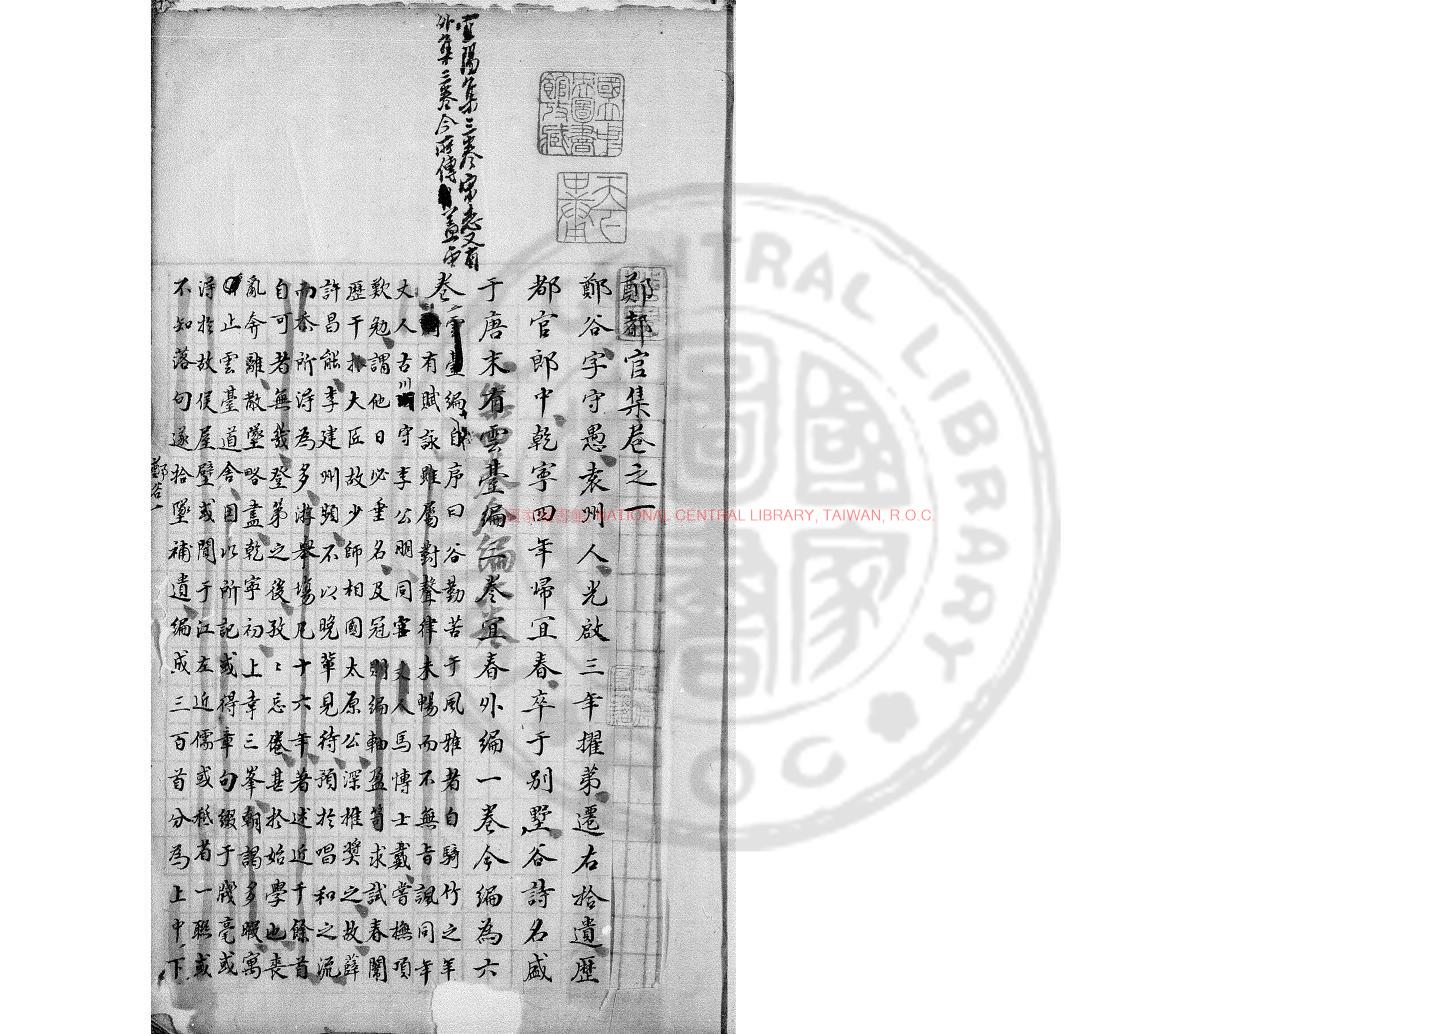 鄭都官集卷之一
鄭谷字守愚袁州人光啟三年擢第遷右拾遺歷
都官郎中乾寧四年歸宜春卒于別墅谷詩名盛
于唐末有雲臺編三卷宜春外編一卷今編為六
卷
雲臺編自序曰谷勤苦于風雅者自騎竹之年
有賦詠雖屬對聲律未暢而不無旨諷同年
丈人古川守李公朋同官丈人馬博士戴嘗撫頂
歎勉謂他日必垂名及冠則編軸盈笥求試春闈
歷干于大匠故少師相國太原公深推奬之故薛
許昌能李建州頻不以晚輩見待預於唱和之流
而忝所得為多游舉場凡十六年著述近千餘首
自可者無幾登第之後孜孜忘倦甚於始學也喪
亂奔離散墜略盡乾寧初上幸三峯朝謁多暇寓
止雲臺道舍因以所記或得章句綴于牋毫或
得於故侯屋壁或聞于江左近儒或秪省一聯或
不知落句遂拾墜補遺編成三百首分為上中下
宜陽集三卷
外集三卷今所傳
鄭谷一
國立中央圖書館收藏
NATIONAL CENTRAL LIBRARY, TAIWAN, R.O.C.
CENTRAL LIBRARY